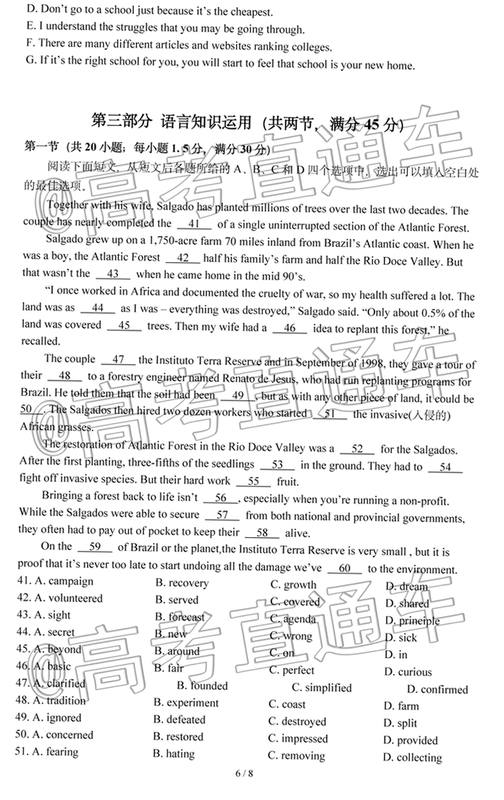 D. Don't go to a school just because it's the cheapest.
E. I understand the struggles that you may be going through.
F. There are many different articles and websites ranking colleges.
G. If it's the right school for you, you will start to feel that school is your new home.
第三部分 语言知识运用（共两节，满分 45 分）
第一节（共 20 小题；每小题 1.5 分，满分 30 分）
阅读下面短文，从短文后各题所给的 A、B、C 和 D 四个选项中，选出可以填入空白处
的最佳选项。
Together with his wife, Salgado has planted millions of trees over the last two decades. The
couple has nearly completed the 41 of a single uninterrupted section of the Atlantic Forest.
Salgado grew up on a 1,750-acre farm 70 miles inland from Brazil's Atlantic coast. When he
was a boy, the Atlantic Forest 42 half his family's farm and half the Rio Doce Valley. But
that wasn't the 43 when he came home in the mid 90's.
"I once worked in Africa and documented the cruelty of war, so my health suffered a lot. The
land was as 44 as I was – everything was destroyed," Salgado said. "Only about 0.5% of the
land was covered 45 trees. Then my wife had a 46 idea to replant this forest," he
recalled.
The couple 47 the Instituto Terra Reserve and in September of 1998, they gave a tour of
their 48 to a forestry engineer named Renato de Jesus, who had run replanting programs for
Brazil. He told them that the soil had been 49 , but as with any other piece of land, it could be
50 . The Salgados then hired two dozen workers who started 51 the invasive(入侵的)
African grasses.
The restoration of Atlantic Forest in the Rio Doce Valley was a 52 for the Salgados.
After the first planting, three-fifths of the seedlings 53 in the ground. They had to 54
fight off invasive species. But their hard work 55 fruit.
Bringing a forest back to life isn't 56 , especially when you're running a non-profit.
While the Salgados were able to secure 57 from both national and provincial governments,
they often had to pay out of pocket to keep their 58 alive.
On the 59 of Brazil or the planet,the Instituto Terra Reserve is very small , but it is
proof that it's never too late to start undoing all the damage we've 60 to the environment.
41. A. campaign B. recovery C. growth D. dream
42. A. volunteered B. served C. covered D. shared
43. A. sight B. forecast C. agenda D. principle
44. A. secret B. new C. wrong D. sick
45. A. beyond B. around C. on D. in
46. A. basic B. fair C. perfect D. curious
47. A. clarified B. founded C. simplified D. confirmed
48. A. tradition B. experiment C. coast D. farm
49. A. ignored B. defeated C. destroyed D. split
50. A. concerned B. restored C. impressed D. provided
51. A. fearing B. hating C. removing D. collecting
6 / 8
@高考直通车
@高考直通车
@高考直通车